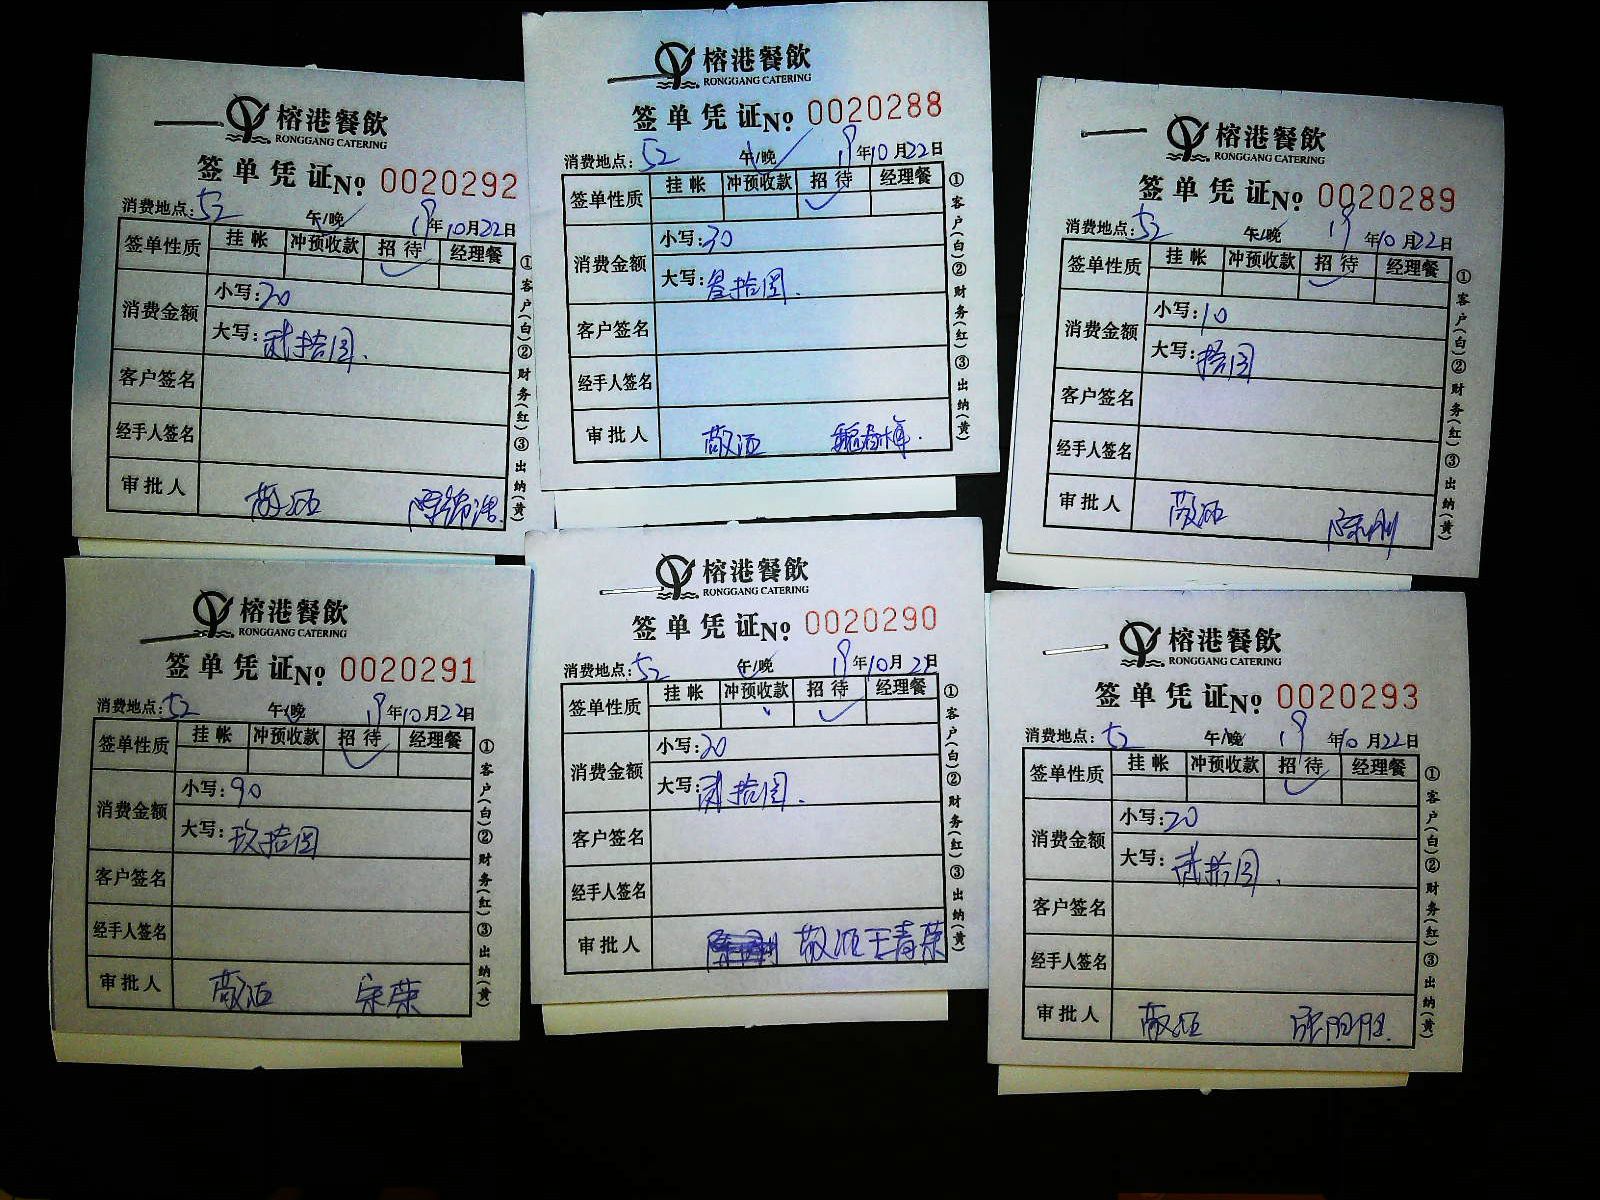 榕港餐飲
RONGGANG CATERING
签单凭证 № 0020292
消费地点: 52 午/晚 19年10月22日
签单性质 挂帐 冲预收款 招待 经理餐
消费金额 小写: 20
大写: 贰拾圆.
客户签名
经手人签名
审批人 敬酒
①客户(白)②财务(红)③出纳(黄)
榕港餐飲
RONGGANG CATERING
签单凭证 № 0020288
消费地点: 52 午/晚 19年10月22日
签单性质 挂帐 冲预收款 招待 经理餐
消费金额 小写: 30
大写: 叁拾圆.
客户签名
经手人签名
审批人 敬酒
①客户(白)②财务(红)③出纳(黄)
榕港餐飲
RONGGANG CATERING
签单凭证 № 0020289
消费地点: 52 午/晚 19年10月22日
签单性质 挂帐 冲预收款 招待 经理餐
消费金额 小写: 10
大写: 拾圆
客户签名
经手人签名
审批人 敬酒 陈刚
①客户(白)②财务(红)③出纳(黄)
榕港餐飲
RONGGANG CATERING
签单凭证 № 0020291
消费地点: 52 午/晚 19年10月22日
签单性质 挂帐 冲预收款 招待 经理餐
消费金额 小写: 90
大写: 玖拾圆
客户签名
经手人签名
审批人 敬酒 宋荣
①客户(白)②财务(红)③出纳(黄)
榕港餐飲
RONGGANG CATERING
签单凭证 № 0020290
消费地点: 52 午/晚 19年10月22日
签单性质 挂帐 冲预收款 招待 经理餐
消费金额 小写: 20
大写: 贰拾圆.
客户签名
经手人签名
审批人 敬酒 王青荣
①客户(白)②财务(红)③出纳(黄)
榕港餐飲
RONGGANG CATERING
签单凭证 № 0020293
消费地点: 52 午/晚 19年10月22日
签单性质 挂帐 冲预收款 招待 经理餐
消费金额 小写: 20
大写: 贰拾圆.
客户签名
经手人签名
审批人 敬酒 张阳阳.
①客户(白)②财务(红)③出纳(黄)